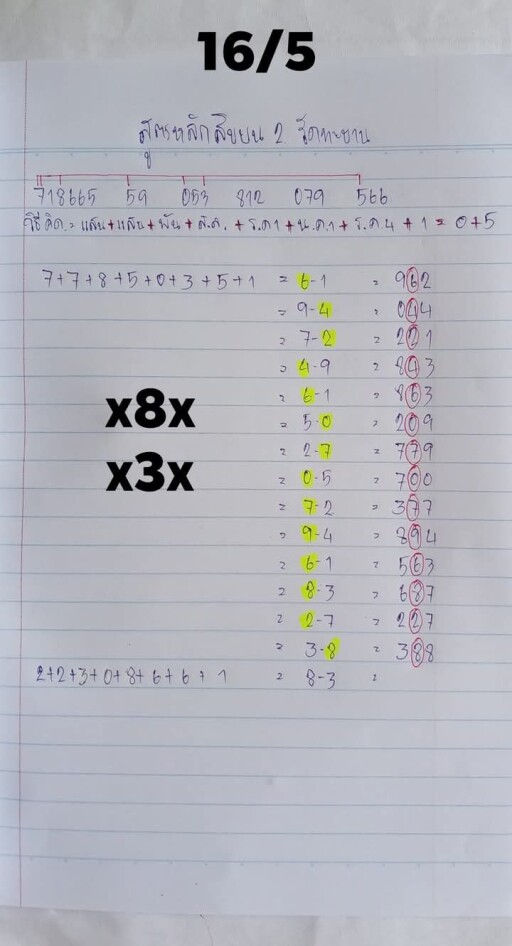 16/5
สูตรหลักสิบบน 2. รัดทะยาน
718665 59 053 812 079 566
วิธีคิด = แสน+แสน+พัน+ส.ล. + ร.ค1 + น.ค.1 + ร.ค4 + 1 = 0+5
7+7+8+5+0+3+5+1 = 6-1 = 962
= 9-4 = 044
= 7-2 = 221
= 4-9 = 843
= 6-1 = 863
= 5-0 = 209
= 2-7 = 779
= 0-5 = 700
= 7-2 = 377
= 9-4 = 894
= 6-1 = 563
= 8-3 = 687
= 2-7 = 227
= 3-8 = 388
2+2+3+0+8+6+6+1 = 8-3 =
x8x
x3x